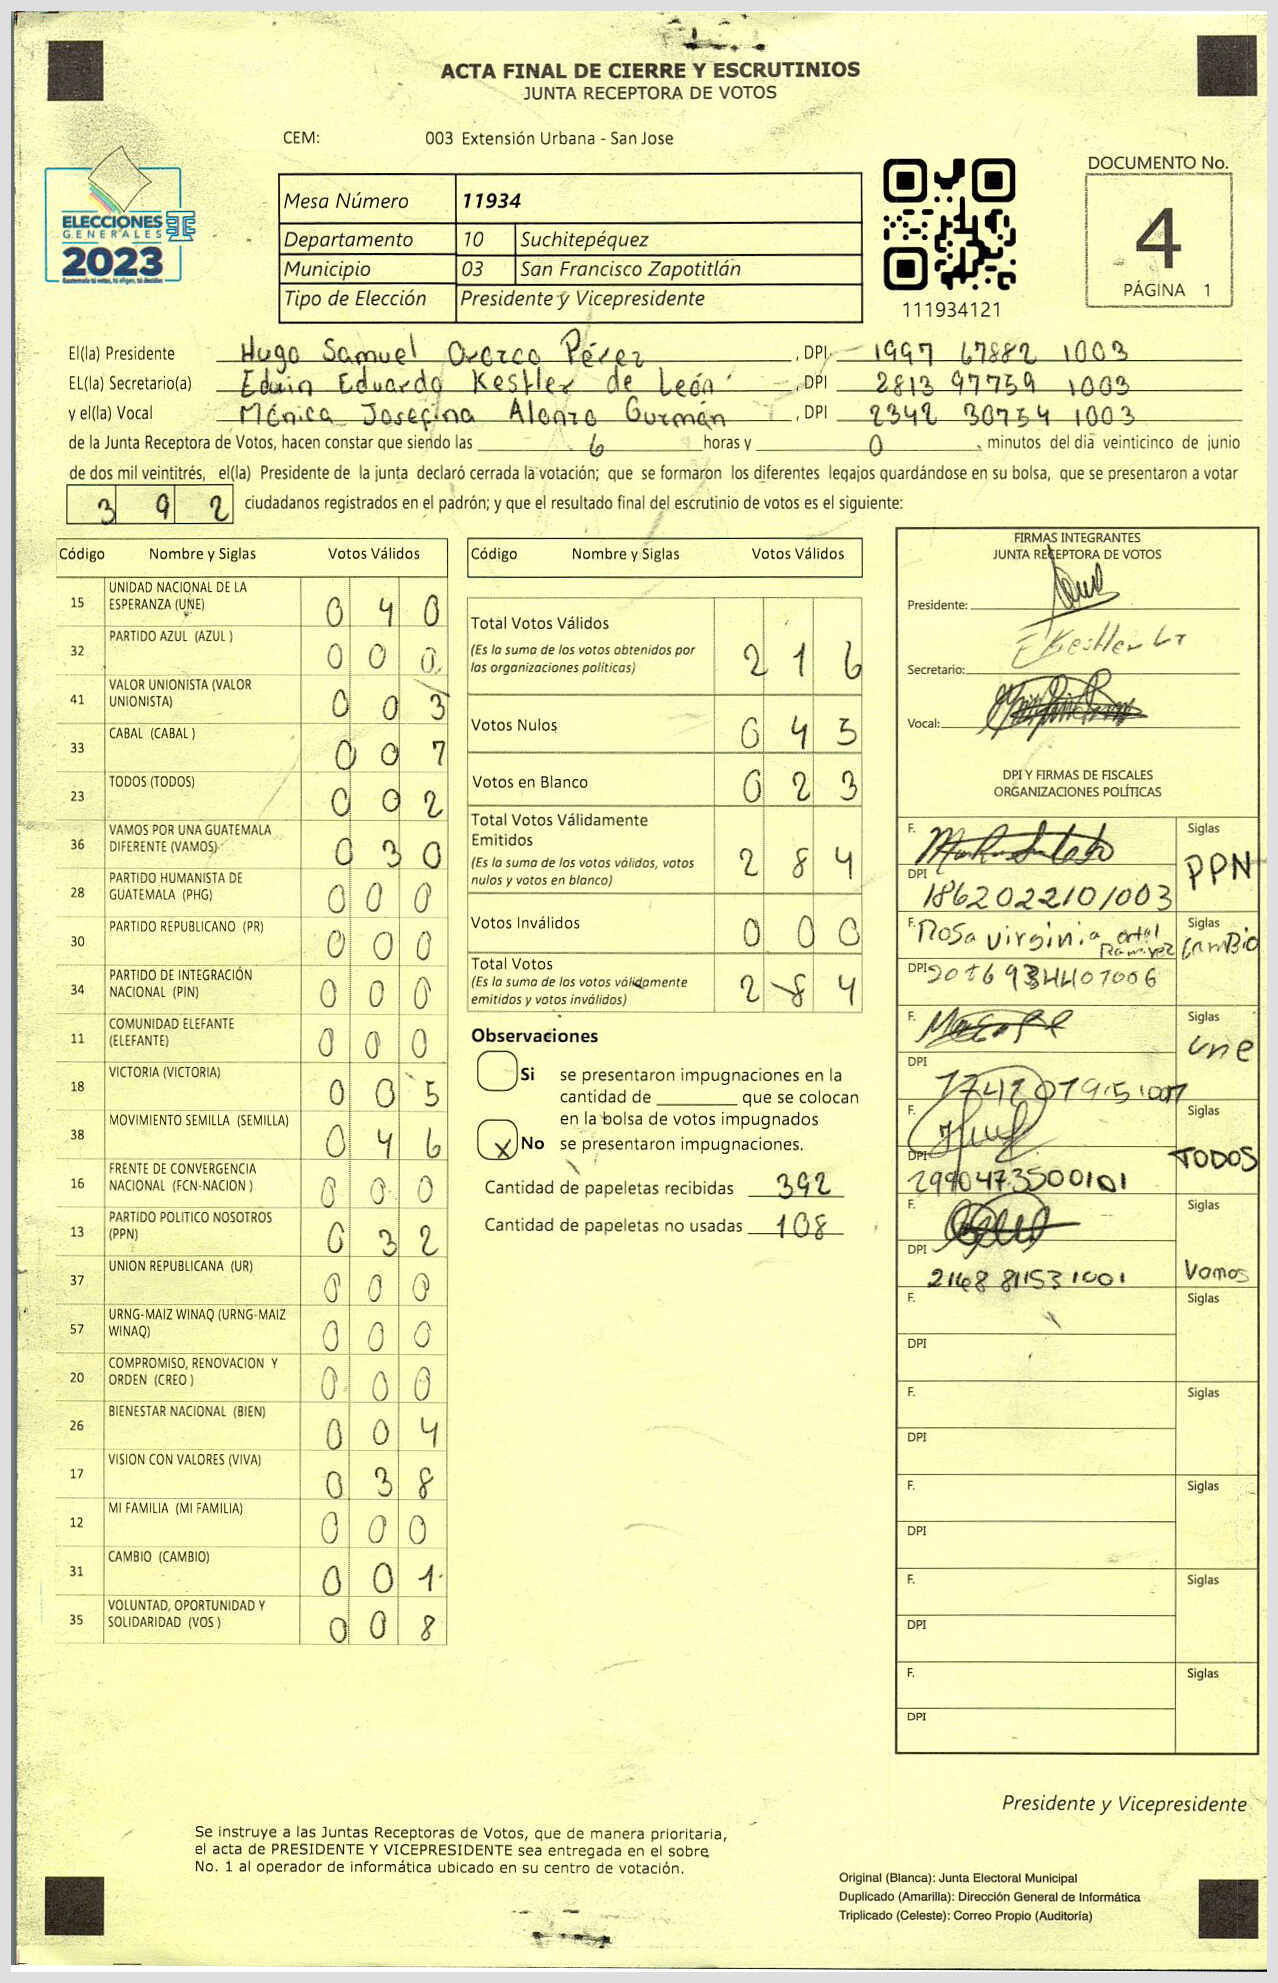 ACTA FINAL DE CIERRE Y ESCRUTINIOS
JUNTA RECEPTORA DE VOTOS
CEM: 003 Extensión Urbana - San Jose
ELECCIONES
GENERALES
2023
DOCUMENTO No.
4
PÁGINA 1
Mesa Número 11934
Departamento 10 Suchitepéquez
Municipio 03 San Francisco Zapotitlán
Tipo de Elección Presidente y Vicepresidente
111934121
El(la) Presidente Hugo Samuel Orozco Pérez, DPI 1997 67882 1003
EL(la) Secretario(a) Edwin Eduardo Kestler de León, DPI 2813 97759 1003
y el(la) Vocal Mónica Josefina Alonzo Guzmán, DPI 2342 30754 1003
de la Junta Receptora de Votos, hacen constar que siendo las 6 horas y 0 , minutos del día veinticinco de junio
de dos mil veintitrés, el(la) Presidente de la junta declaró cerrada la votación; que se formaron los diferentes legajos quardándose en su bolsa, que se presentaron a votar
3 9 2 ciudadanos registrados en el padrón; y que el resultado final del escrutinio de votos es el siguiente:
Código Nombre y Siglas Votos Válidos
15 UNIDAD NACIONAL DE LA ESPERANZA (UNE) 0 4 0
32 PARTIDO AZUL (AZUL ) 0 0 0
41 VALOR UNIONISTA (VALOR UNIONISTA) 0 0 3
33 CABAL (CABAL ) 0 0 7
23 TODOS (TODOS) 0 0 2
36 VAMOS POR UNA GUATEMALA DIFERENTE (VAMOS) 0 3 0
28 PARTIDO HUMANISTA DE GUATEMALA (PHG) 0 0 0
30 PARTIDO REPUBLICANO (PR) 0 0 0
34 PARTIDO DE INTEGRACIÓN NACIONAL (PIN) 0 0 0
11 COMUNIDAD ELEFANTE (ELEFANTE) 0 0 0
18 VICTORIA (VICTORIA) 0 0 5
38 MOVIMIENTO SEMILLA (SEMILLA) 0 4 6
16 FRENTE DE CONVERGENCIA NACIONAL (FCN-NACION ) 0 0 0
13 PARTIDO POLITICO NOSOTROS (PPN) 0 3 2
37 UNION REPUBLICANA (UR) 0 0 0
57 URNG-MAIZ WINAQ (URNG-MAIZ WINAQ) 0 0 0
20 COMPROMISO, RENOVACION Y ORDEN (CREO ) 0 0 0
26 BIENESTAR NACIONAL (BIEN) 0 0 4
17 VISION CON VALORES (VIVA) 0 3 8
12 MI FAMILIA (MI FAMILIA) 0 0 0
31 CAMBIO (CAMBIO) 0 0 1
35 VOLUNTAD, OPORTUNIDAD Y SOLIDARIDAD (VOS ) 0 0 8
Código Nombre y Siglas Votos Válidos
Total Votos Válidos 2 1 6
(Es la suma de los votos obtenidos por
las organizaciones políticas)
Votos Nulos 0 4 5
Votos en Blanco 0 2 3
Total Votos Válidamente
Emitidos 2 8 4
(Es la suma de los votos válidos, votos
nulos y votos en blanco)
Votos Inválidos 0 0 0
Total Votos 2 8 4
(Es la suma de los votos válidamente
emitidos y votos inválidos)
Observaciones
Si se presentaron impugnaciones en la
cantidad de ________ que se colocan
en la bolsa de votos impugnados
x No se presentaron impugnaciones.
Cantidad de papeletas recibidas 392
Cantidad de papeletas no usadas 108
FIRMAS INTEGRANTES
JUNTA RECEPTORA DE VOTOS
Presidente:
Secretario: EKestler
Vocal:
DPI Y FIRMAS DE FISCALES
ORGANIZACIONES POLÍTICAS
F. Siglas PPN
DPI 1862022101003
F. Rosa virginia Ramirez Siglas Cambio
DPI
F. Siglas une
DPI
F. Siglas TODOS
DPI 2990473500101
F. Siglas Vamos
DPI 2168 81153 1001
F. Siglas
DPI
F. Siglas
DPI
F. Siglas
DPI
F. Siglas
DPI
F. Siglas
DPI
Presidente y Vicepresidente
Se instruye a las Juntas Receptoras de Votos, que de manera prioritaria,
el acta de PRESIDENTE Y VICEPRESIDENTE sea entregada en el sobre
No. 1 al operador de informática ubicado en su centro de votación.
Original (Blanca): Junta Electoral Municipal
Duplicado (Amarilla): Dirección General de Informática
Triplicado (Celeste): Correo Propio (Auditoría)